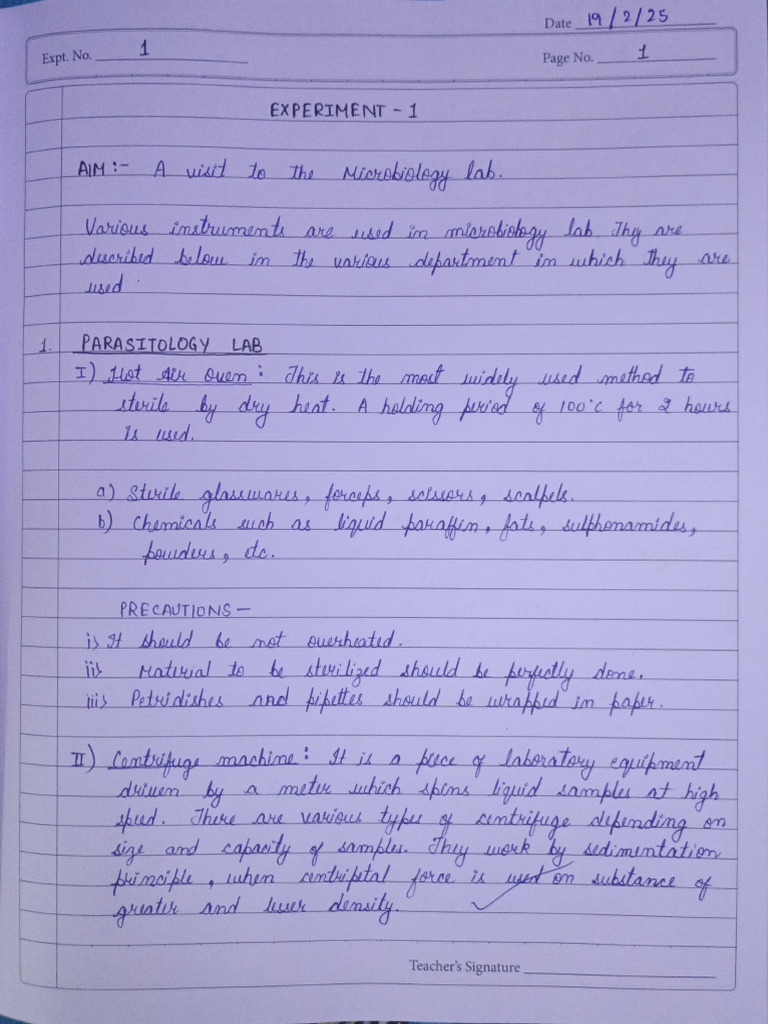 Date 19/2/25
Expt. No. 1
Page No. 1
EXPERIMENT - 1
AIM :- A visit to the Microbiology lab.
Various instruments are used in microbiology lab. Thy are
described below in the various department in which they are
used.
1. PARASITOLOGY LAB
I) Hot Air Oven : This is the most widely used method to
sterile by dry heat. A holding period of 100°C for 2 hours
is used.
a) Sterile glasswares, forceps, scissors, scalpels.
b) Chemicals such as liquid paraffin, fats, sulphonamides,
powders, etc.
PRECAUTIONS —
i> It should be not overheated.
ii> Material to be sterilized should be perfectly done.
iii> Petridishes and pipettes should be wrapped in paper.
II) Centrifuge machine : It is a piece of laboratory equipment
driven by a meter which spins liquid samples at high
speed. There are various types of centrifuge depending on
size and capacity of samples. They work by sedimentation
principle, when centripetal force is used on substance of
greater and lesser density.
Teacher's Signature